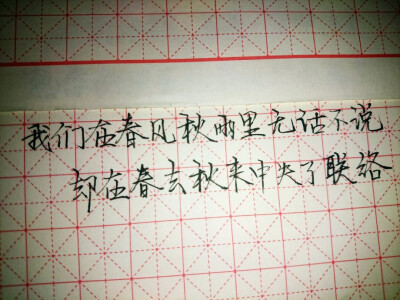 我们在春风秋雨里无话不说
却在春去秋来中失了联络